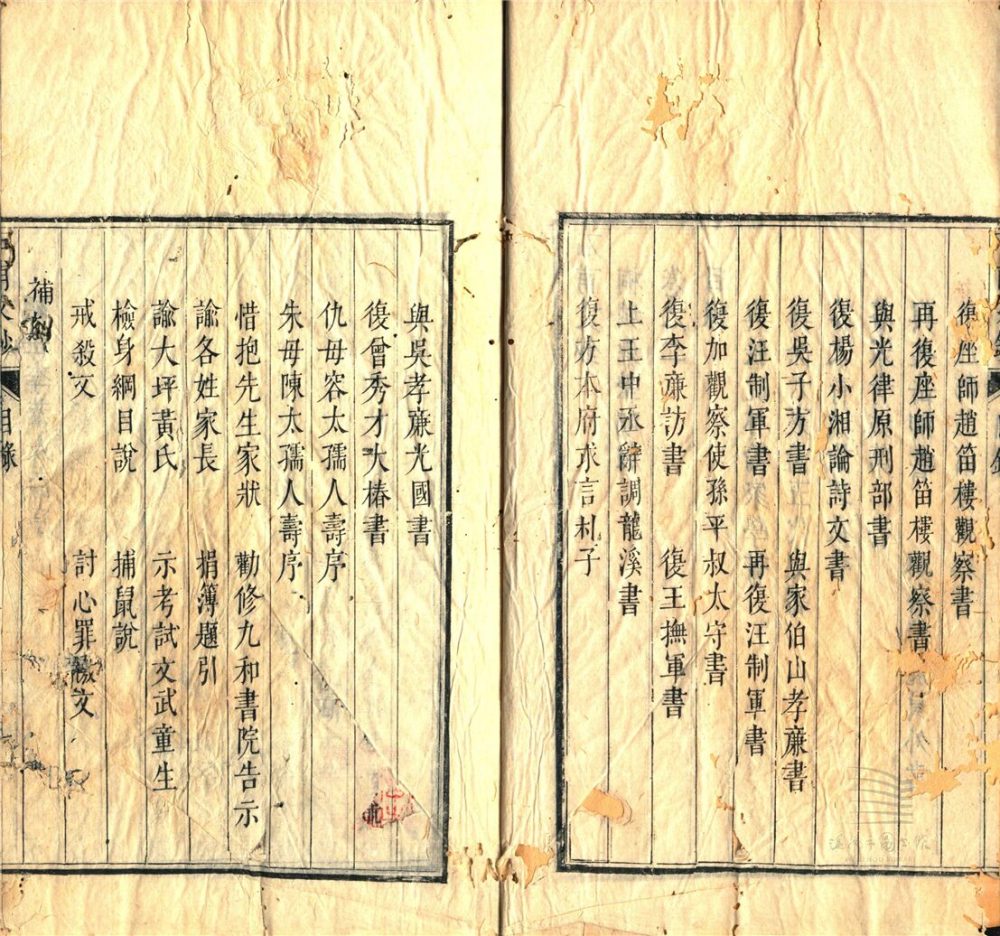 復座師趙笛樓觀察書
再復座師趙笛樓觀察書
與光律原刑部書
復楊小湘論詩文書
復吳子方書 與家伯山孝廉書
復汪制軍書 再復汪制軍書
復加觀察使孫平叔太守書
復李廉訪書 復王撫軍書
上王中丞辭調龍溪書
復方本府求言札子
與吳孝廉光國書
復曾秀才大椿書
仇母容太孺人壽序
朱母陳太孺人壽序
惜抱先生家狀 勸修九和書院告示
諭各姓家長 捐簿題引
諭大坪黃氏 示考試文武童生
檢身綱目說 捕鼠說
戒殺文 討心罪檄文
補刻
文鈔 目錄